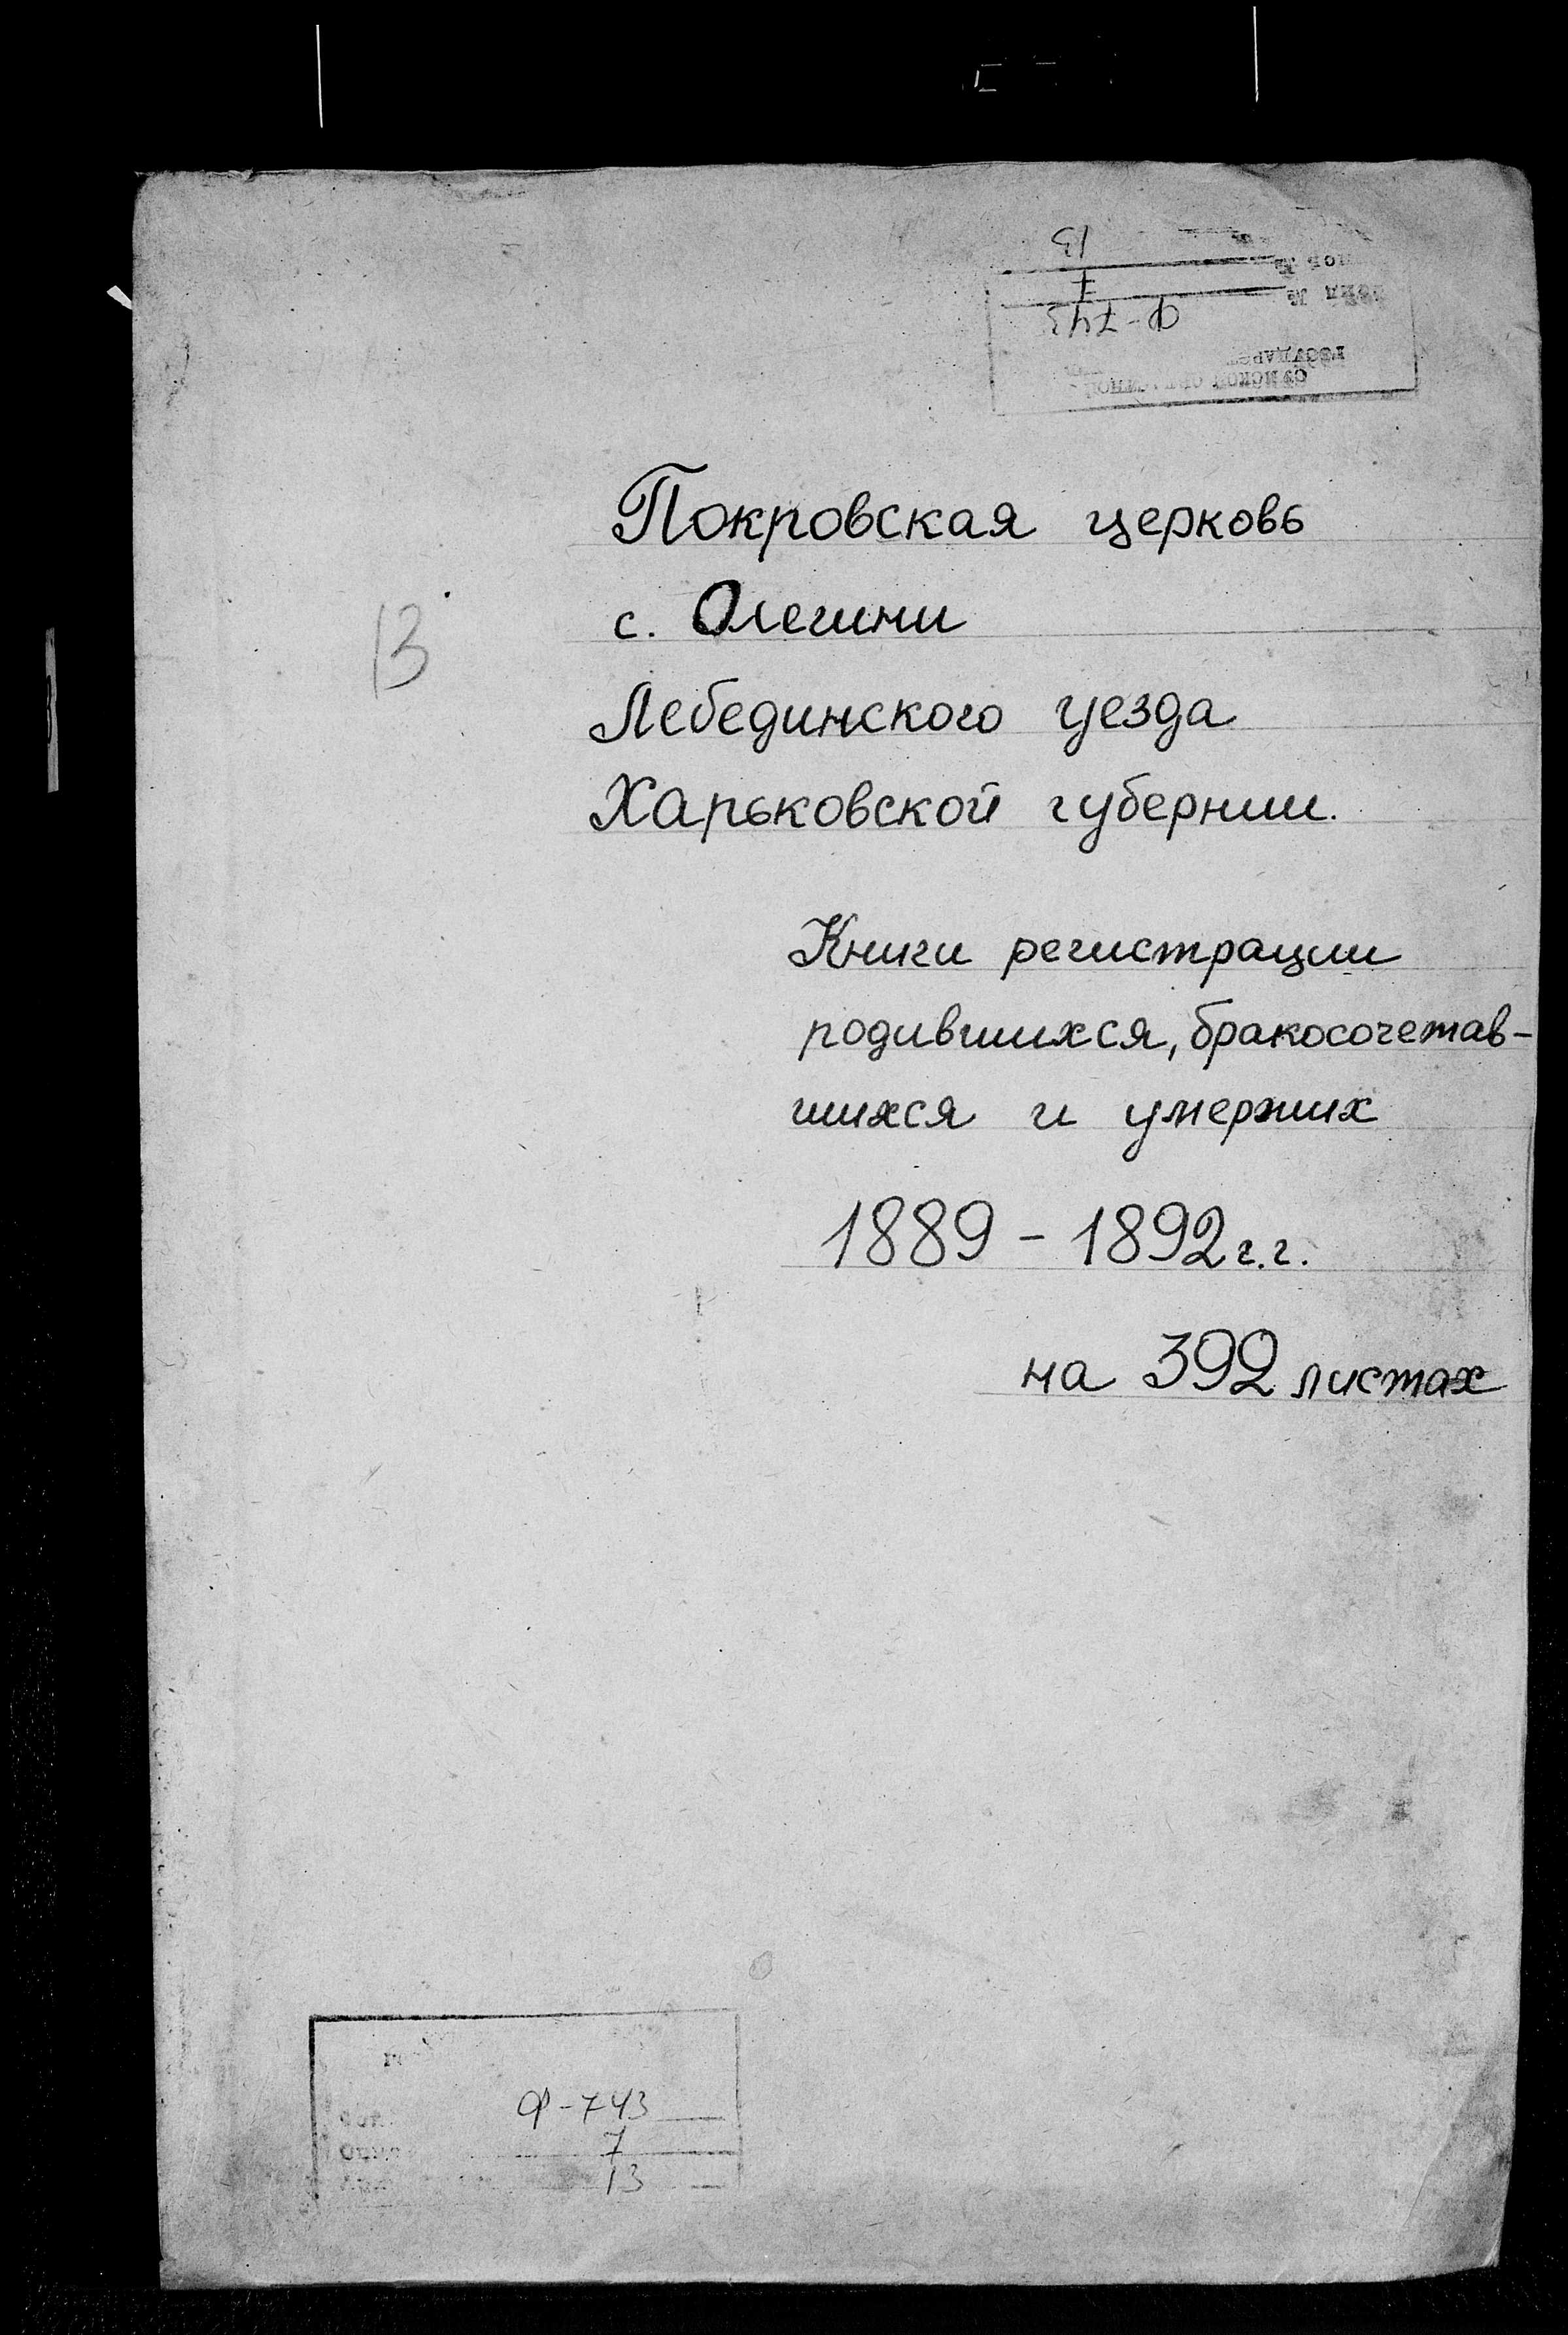 Покровская церковь
с. Олешни
Лебединского уезда
Харьковской губернии.
13
Книги регистрации
родившихся, бракосочетав-
шихся и умерших
1889 - 1892 г.г.
на 392 листах
Ф-743
7
13
Ф-743
7
13